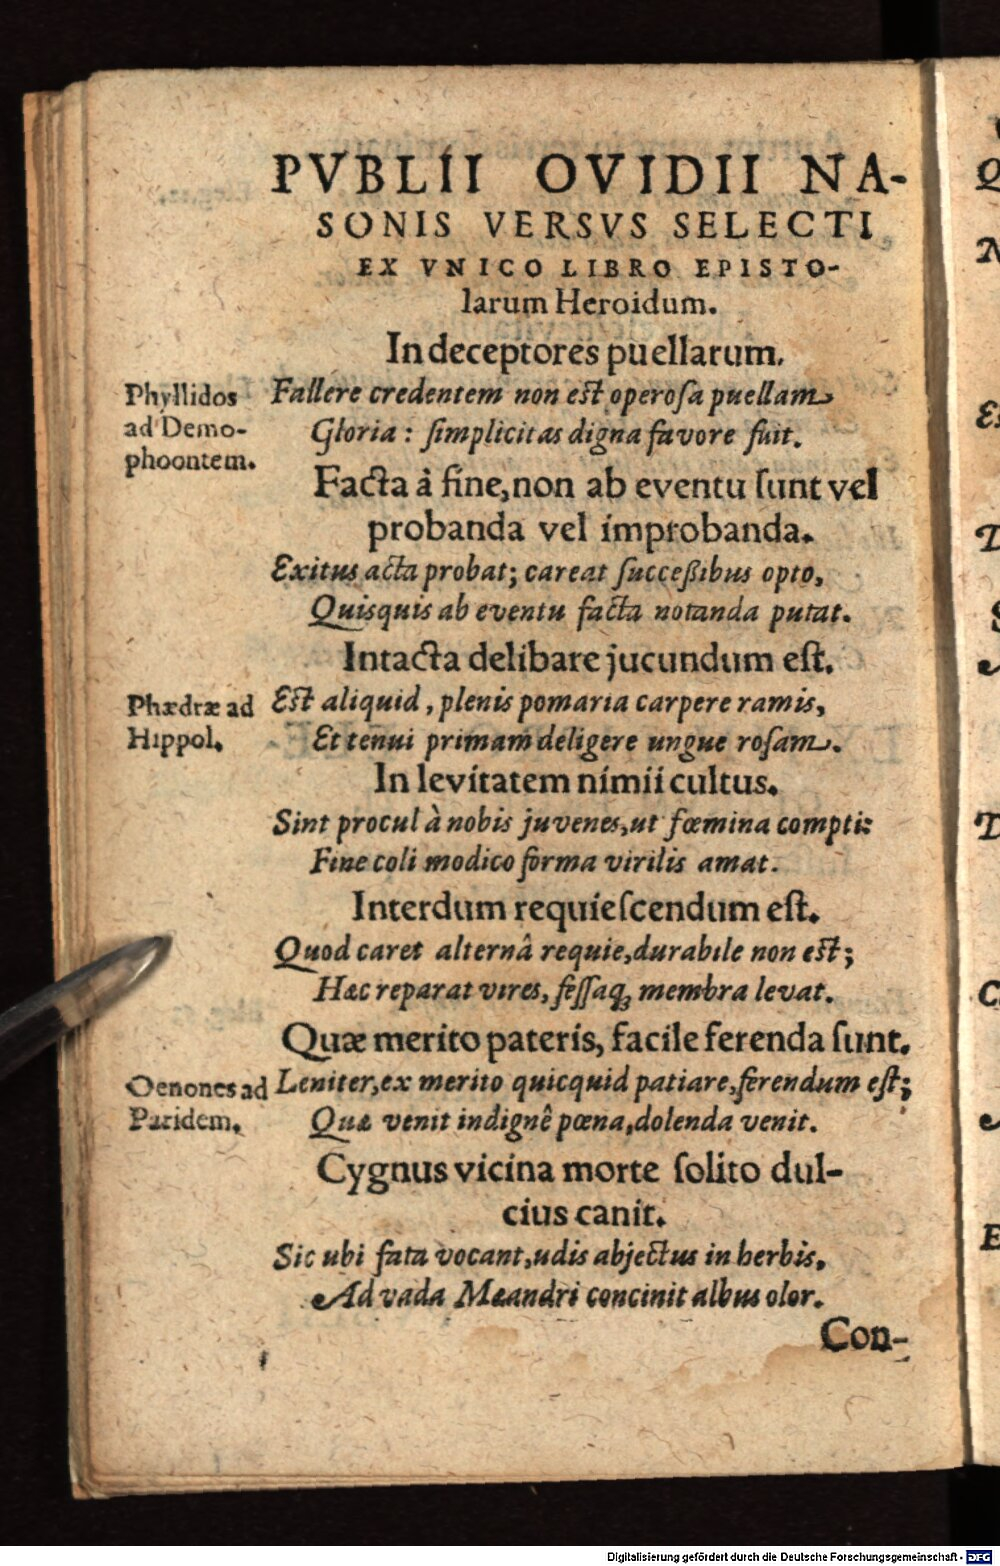 PVBLII OVIDII NA-
SONIS VERSVS SELECTI
EX VNICO LIBRO EPISTO-
larum Heroidum.
In deceptores puellarum.
Phyllidos
ad Demo-
phoontem.
Fallere credentem non est operoſa puellam
Gloria: ſimplicitas digna favore fuit.
Facta à fine, non ab eventu ſunt vel
probanda vel improbanda.
Exitus acta probat; careat ſucceßibus opto,
Quisquis ab eventu facta notanda putat.
Intacta delibare jucundum eſt.
Phædræ ad
Hippol.
Est aliquid, plenis pomaria carpere ramis,
Et tenui primam deligere ungue roſam.
In levitatem nimii cultus.
Sint procul à nobis juvenes, ut fœmina compti:
Fine coli modico forma virilis amat.
Interdum requieſcendum eſt.
Quod caret alternâ requie, durabile non est;
Hæc reparat vires, feſſaq; membra levat.
Quæ merito pateris, facile ferenda ſunt.
Oenones ad
Paridem.
Leniter, ex merito quicquid patiare, ferendum eſt;
Quæ venit indignê pœna, dolenda venit.
Cygnus vicina morte ſolito dul-
cius canit.
Sic ubi fata vocant, udis abjectus in herbis,
Ad vada Mæandri concinit albus olor.
Con-
Digitalisierung gefördert durch die Deutsche Forschungsgemeinschaft - DFG